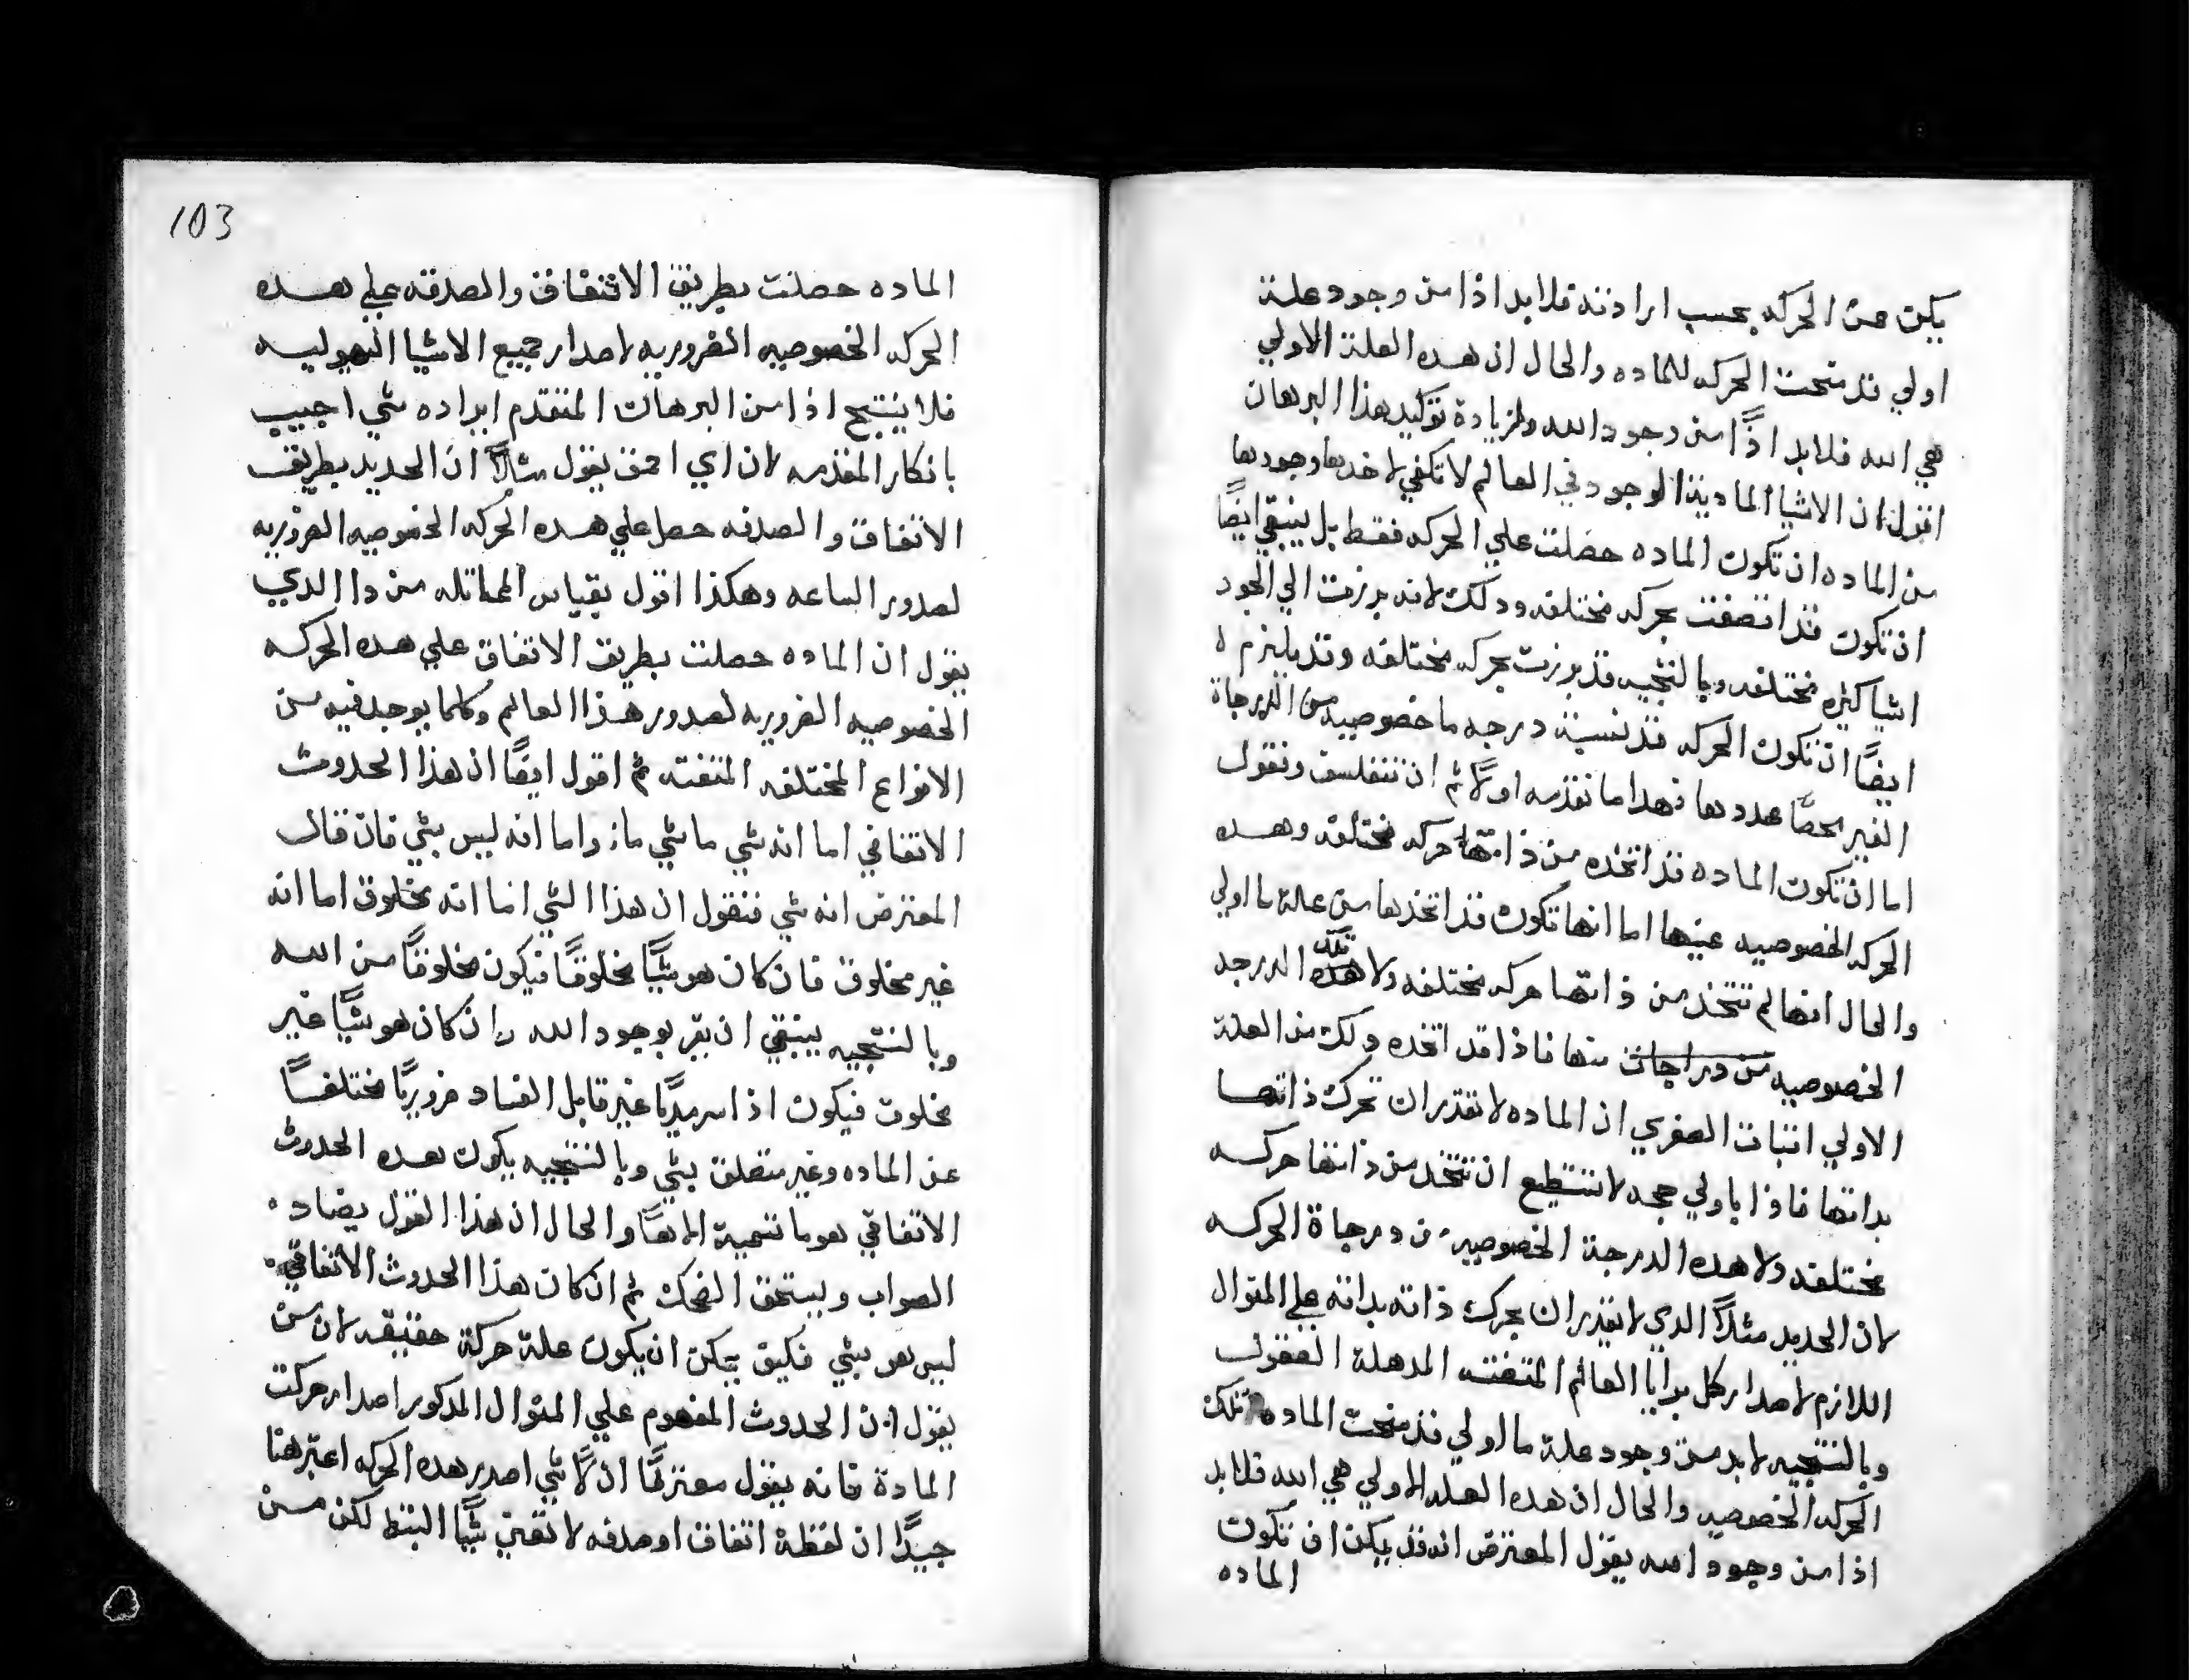 يكن عن الحركه بحسب ارادته فلابد اذا من وجود علة
اولي قد منحت الحركه للماده والحال ان هذه العلة الاولي
هي الله فلابد اذًا من وجود الله ولزيادة توكيد هذا البرهان
اقول ان الاشيا المادية الوجود في العالم لا تكفي لاخدها وجودها
من الماده ان تكون الماده حصلت علي الحركه فقط بل ينبقي ايضًا
ان تكون قد اتصفت بحركه مختلفه ودلك لانه برزت الي الوجود
اشيا كثيره مختلفه وبالنتجيه قد برزت بحركه مختلفه وقد يلزم
ايضًا ان تكون الحركه قد نسبة درجه ما خصوصيه من الدرجاة
الغير محصًا عددها فهدا ما نقدمه اولًا ثم ان نتفلسف ونقول
اما ان تكون الماده قد اتخده من ذاتها حركه مختلفه وهده
الحركه الخصوصيه عينها اما انها تكون قد اتخدها من علة ما اولي
والحال انها لم تتخد من ذاتها حركه مختلفه ولا هده تلك الدرجه
الخصوصيه من دراجات منها فاذا قد اتخده دلك من العلة
الاولي اتبات الصغري ان الماده لا تقدر ان تحرك ذاتها
بداتها فاذا باولي حجه لا تستطيع ان تتخد من ذاتها حركه
مختلفه ولا هده الدرجة الخصوصيه من درجاة الحركه
لان الحديد مثلًا الدي لا يقدر ان يحرك ذاته بداته علي المنوال
اللازم لاصدار كل برايا العالم المتقنه المدهلة العقول
وبالنتجيه لابد من وجود علة ما اولي قد منحت الماده تلك
الحركه الخصوصيه والحال ان هده العله الاولي هي الله فلابد
اذا من وجود الله يقول المعترض انه قد يمكن ان تكون
الماده
103
الماده حصلت بطريق الاتفاق والصدفه علي هده
الحركه الخصوصيه الضروريه لاصدار جميع الاشيا الهيوليه
فلا ينتج اذا من البرهان المتقدم ايراده شي اجيب
بانكار المقدمه لان اي احمق يقول مثلًا ان الحديد بطريق
الاتفاق والصدفه حصل علي هده الحركه الخصوصيه الضروريه
لصدور الساعه وهكذا اقول بقياس المماتله من دا الدي
يقول ان الماده حصلت بطريق الاتفاق علي هده الحركه
الخصوصيه الضروريه لصدور هذا العالم وكلما يوجد فيه من
الانواع المختلفه المتقنه ثم اقول ايضًا ان هذا الحدوث
الاتفاقي اما انه شي ما شي ما واما انه ليس بشي فان قال
المعترض انه شي فنقول ان هذا الشي اما انه مخلوق اما انه
غير مخلوق فان كان هو شيًا مخلوقًا فيكون مخلوقًا من الله
وبالنتجيه ينبقي ان يقر بوجود الله وان كان هو شيًا غير
مخلوق فيكون اذا سرمديًا غير قابل الفساد ضروريًا مختلفًا
عن الماده وغير متعلق بشي وبالنتجيه يكون هده الحدوث
الاتفاقي هو ما نتسمية الاهًا والحال ان هذا القول يضاد
الصواب ويستحق الضحك ثم ان كان هذا الحدوث الاتفاقي
ليس هو بشي فكيف يمكن ان يكون علة حركة حقيقه لان من
يقول ان الحدوث المفهوم علي المنوال المدكور اصدار حركت
المادة فانه يقول معترفًا ان لا شي اصدر هده الحركه اعتبر هنا
جيدًا ان لفظة اتفاق او صدفه لا تعني شيًا البته لكن من